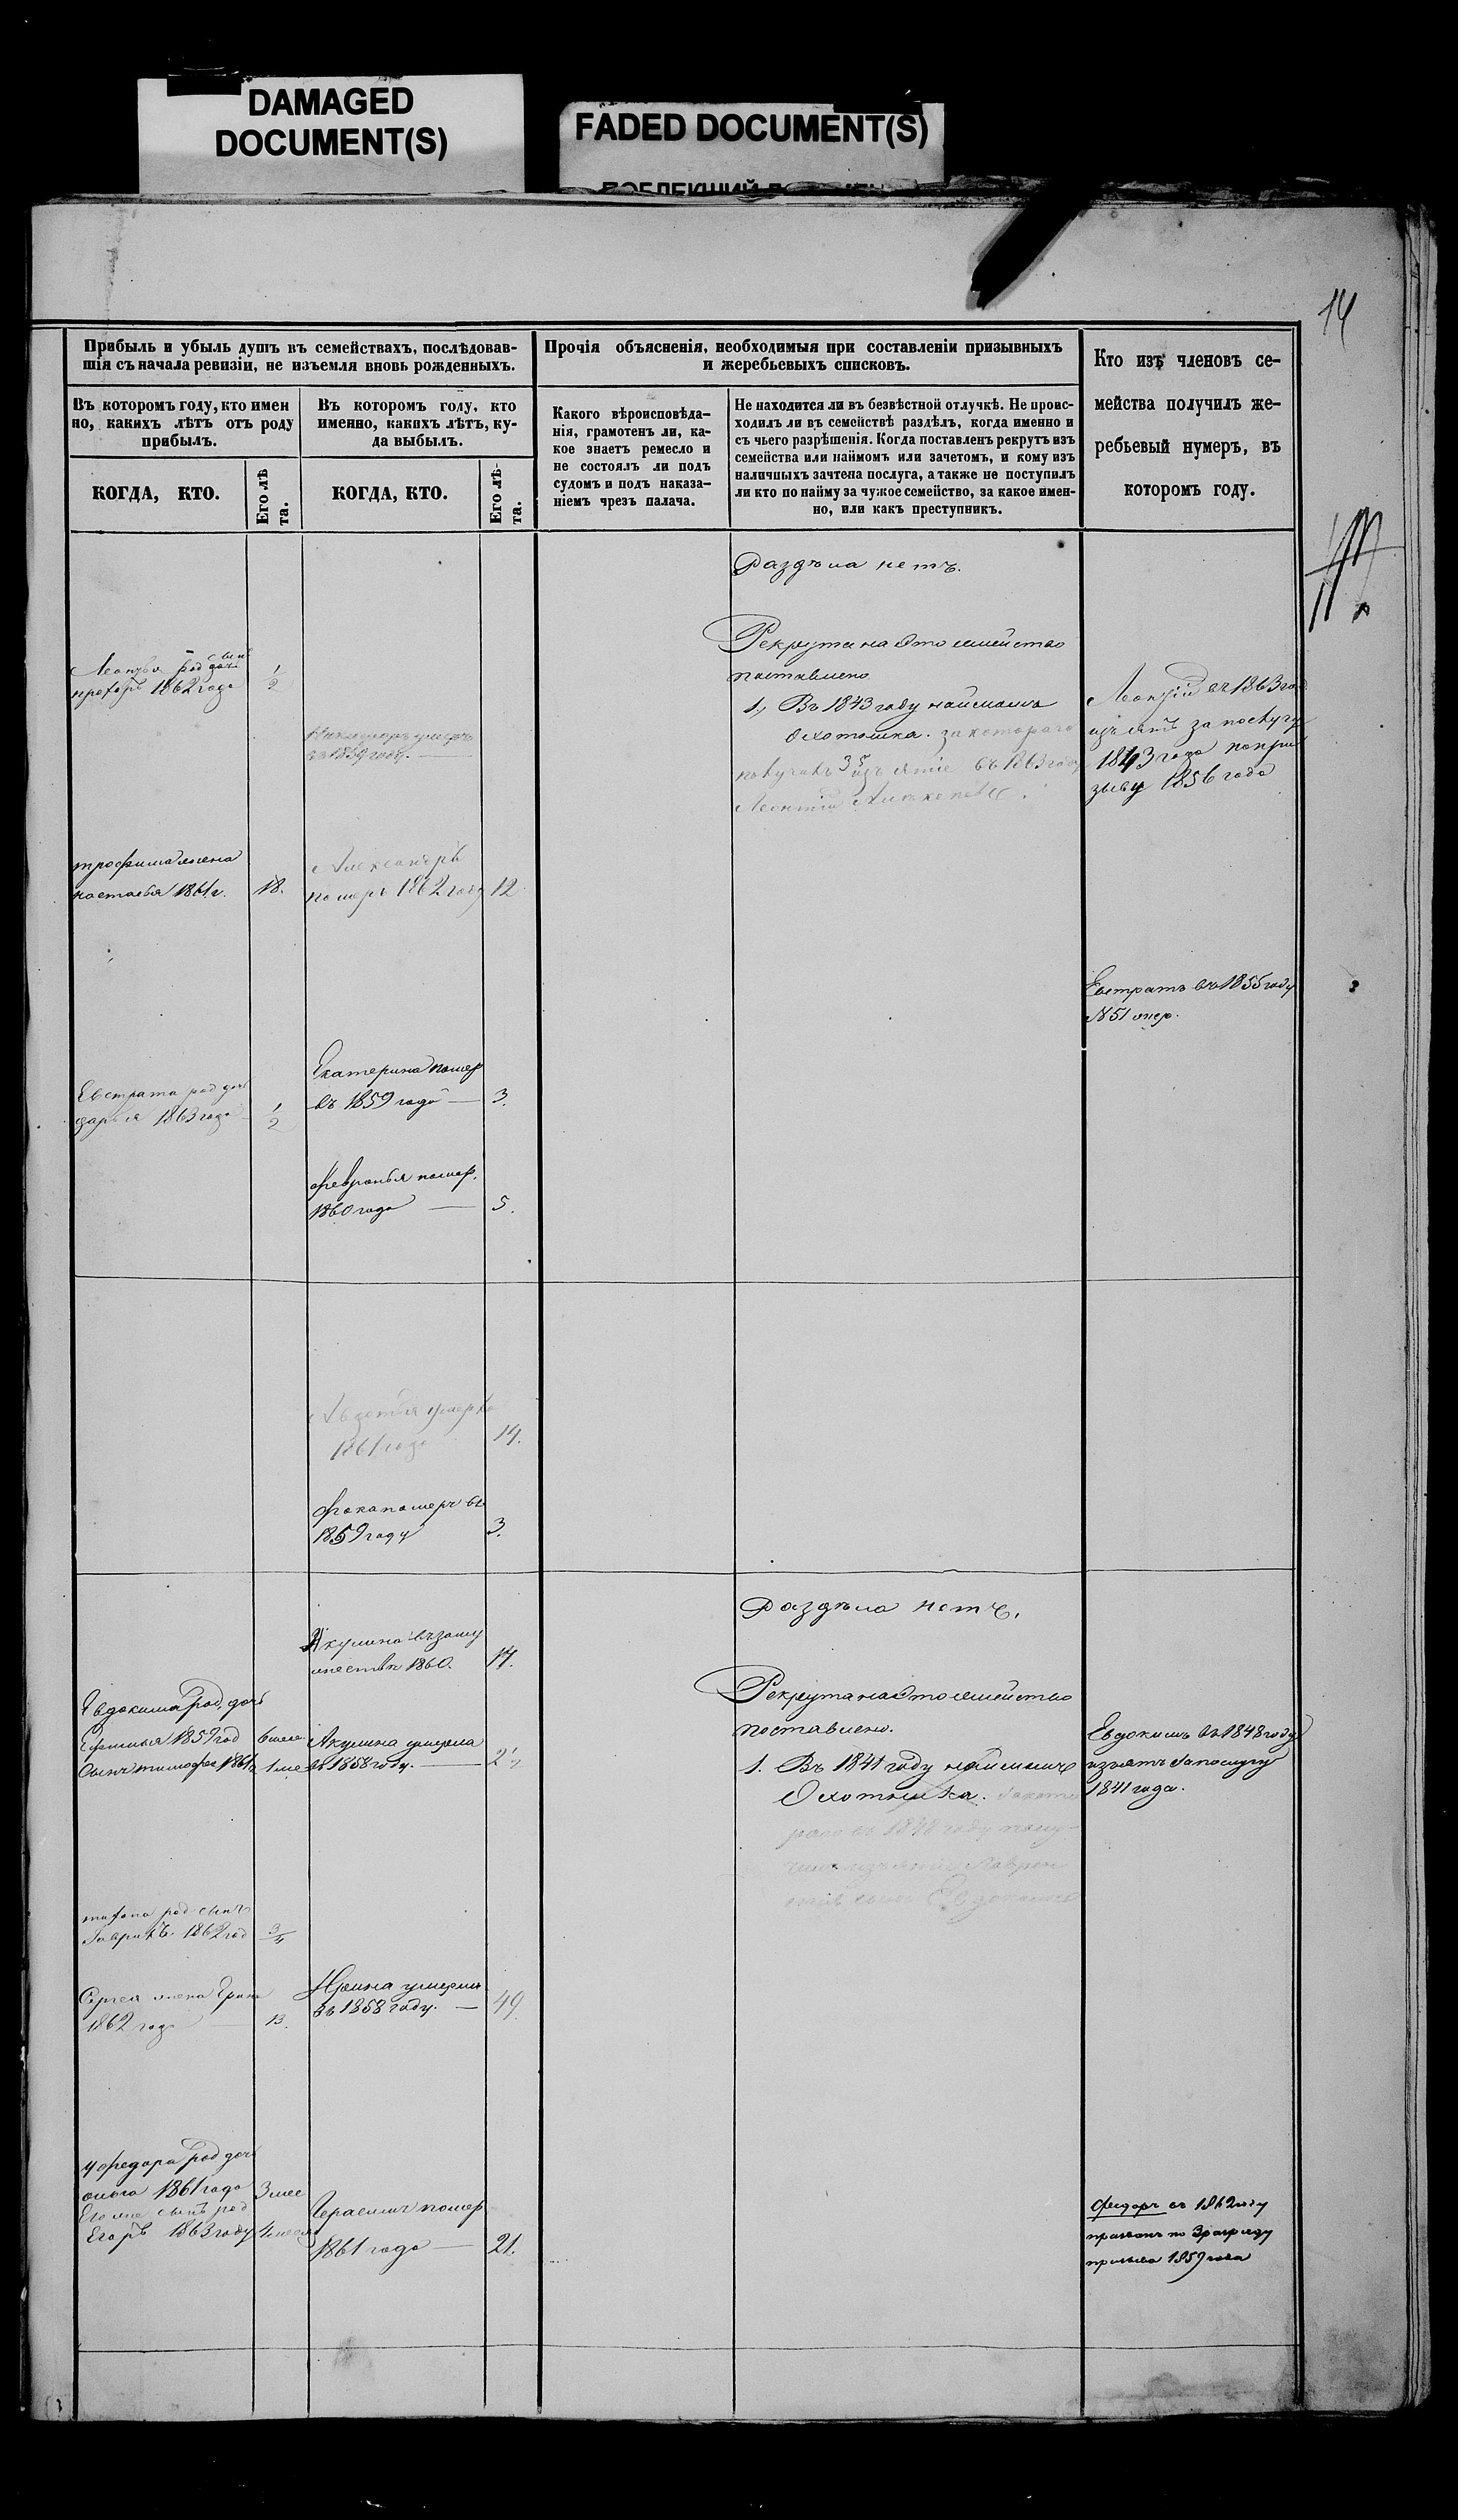 DAMAGED
DOCUMENT(S)
FADED DOCUMENT(S)
14
Прибыль и убыль душъ въ семействахъ, послѣдовав-
шія съ начала ревизіи, не изъемля вновь рожденныхъ.
Въ которомъ году, кто имен
но, какихъ лѣтъ отъ роду
прибылъ.
КОГДА, КТО.
Его лѣ
та.
Въ которомъ году, кто
именно, какихъ лѣтъ, ку-
да выбылъ.
КОГДА, КТО.
Его лѣ-
та.
Прочія объясненія, необходимыя при составленіи призывныхъ
и жеребьевыхъ списковъ.
Какого вѣроисповѣда-
нія, грамотенъ ли, ка-
кое знаетъ ремесло и
не состоялъ ли подъ
судомъ и подъ наказа-
ніемъ чрезъ палача.
Не находится ли въ безвѣстной отлучкѣ. Не проис-
ходилъ ли въ семействѣ раздѣлъ, когда именно и
съ чьего разрѣшенія. Когда поставленъ рекрутъ изъ
семейства или наймомъ или зачетомъ, и кому изъ
наличныхъ зачтена послуга, а также не поступилъ
ли кто по найму за чужое семейство, за какое имен-
но, или какъ преступникъ.
Кто изъ членовъ се-
мейства получилъ же-
ребьевый нумеръ, въ
которомъ году.
Раздѣла нетъ.
Рекрута на это семейство
поставлено
1, Въ 1843 году наймомъ
охотника. за котораго
изъятіе въ 1863 году
Леонтій
Леонтій въ 1863 го
изъятъ за послугу
1843 года по при
зыву 1856 года
род сынъ
1862 года
1/2
умеръ
въ 1859 году.
трофима жена
настасья 1861 г.
18.
Александръ
померъ 1862 году
12
Евстратъ въ 1855 году
№ 51 жер.
Евстрата род доч
дарья 1863 года
1/2
Екатерина помер
въ 1859 годо
3.
Февронья помер.
1860 года
5.
Авдотья умерла
1861 года
14.
Фока померъ въ
1859 году
3.
Раздѣла нетъ.
Акулина въ заму
жествѣ 1860.
17.
Рекрута на это семейство
поставлено.
1. Въ 1841 году наймомъ
Охотника. за кото
раго въ 1848 году полу
изъятіе
сынъ Евдокимъ
Евдокимъ въ 1848 году
изъятъ за послугу
1841 года.
Евдокима род. доч
Ефимья 1859 год
6 меся
Сынъ тимофей 1861 г
1 ме
Акулина умерла
въ 1858 году.
2
род сынъ
1862 год
3/4
Сергея жена Ерина
1862 года
13.
Ирина умерла
въ 1858 году.
49.
у федора род доч
ольга 1861 года
3 мес
Его же сынъ род
Егоръ 1863 году
Герасимъ помер
1861 года
21.
Федоръ въ 1862 году
по 3 разряду
призыва 1859 года